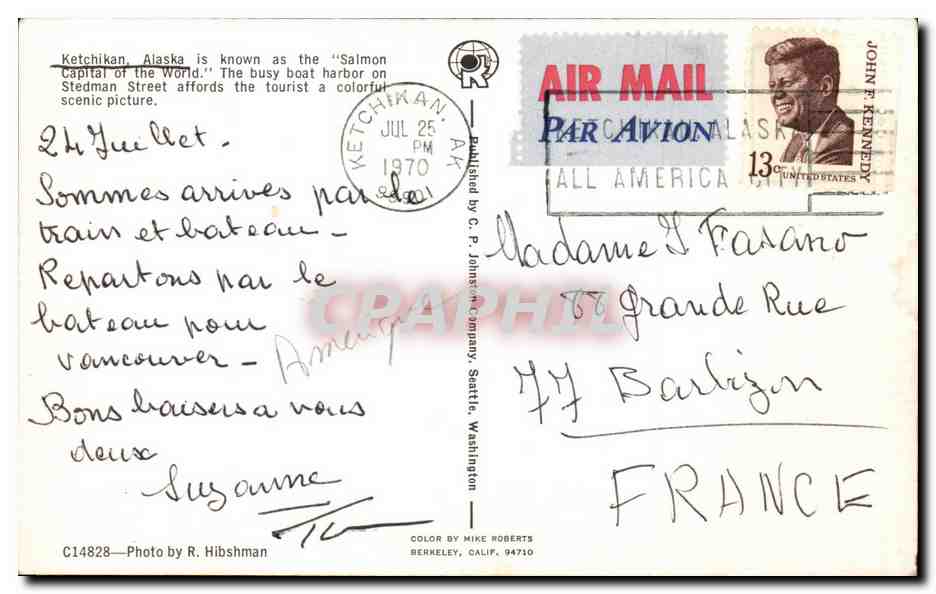 Ketchikan, Alaska is known as the "Salmon
Capital of the World." The busy boat harbor on
Stedman Street affords the tourist a colorful
scenic picture.
24 Juillet.
Sommes arrivés par le
train et bateau -
Repartons par le
bateau pour
Vancouver -
Bons baisers a vous
deux
Suzanne
C14828—Photo by R. Hibshman
Amerique
CPARHIL
KETCHIKAN, AK
JUL 25
PM
1970
99901
R
Published by C. P. Johnston Company, Seattle, Washington
COLOR BY MIKE ROBERTS
BERKELEY, CALIF. 94710
AIR MAIL
PAR AVION
KETCHIKAN ALASKA
ALL AMERICA CITY
JOHN F. KENNEDY
13c
UNITED STATES
Madame J Fasano
88 Grande Rue
77 Barbizon
FRANCE